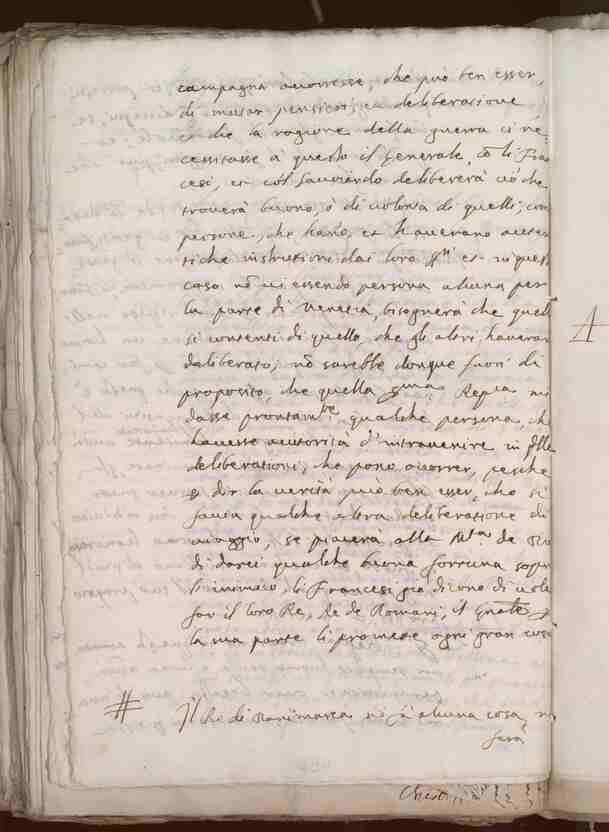 campagna occorresse, che può ben esser,
di mutar pensieri, et deliberatione,
et che la ragione della guerra ci ne-
cessitasse à questo il Generale, cō li Fran
cesi, et col Sauoiardo delibererà ciò che
trouerà buono, ò di uolontà di quelli, con
persone, che hano, et haueranno auten
tiche instrutioni dai loro et in quest
caso nō ui essendo persona alcuna per
la parte di Venetia, bisognerà che quell
si contenti di quello, che gli altri haueran
deliberato; nō sarebbe donque fuori di
proposito, che quella Repca
dasse prontamte qualche persona, ch
hauesse autorità d'interuenire in
deliberationi, che pono occorrer, perche
à dir la uerità può ben esser, che si
faccia qualche altra deliberatione di
uiaggio, se piacerà alla Mtà de Dio
di darci qualche buona fortuna sopra
l'inimico, li Francesi già dicono di uole
far il loro Re, Re de Romani, il quale p
la sua parte li promette ogni gran cosa
# Il Re di Danimarca nō fà alcuna cosa, nè
farà
A